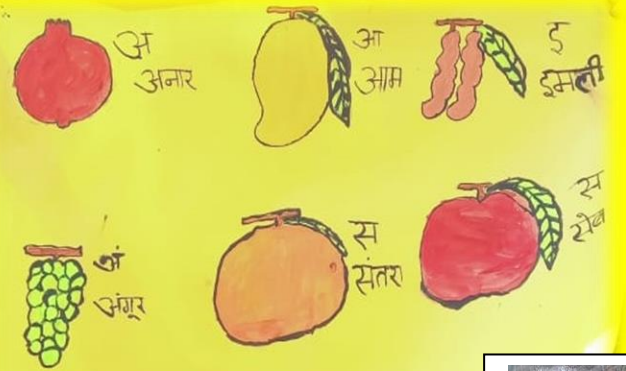 अ
अनार
आ
आम
इ
इमली
अं
अंगूर
स
संतरा
स
सेब